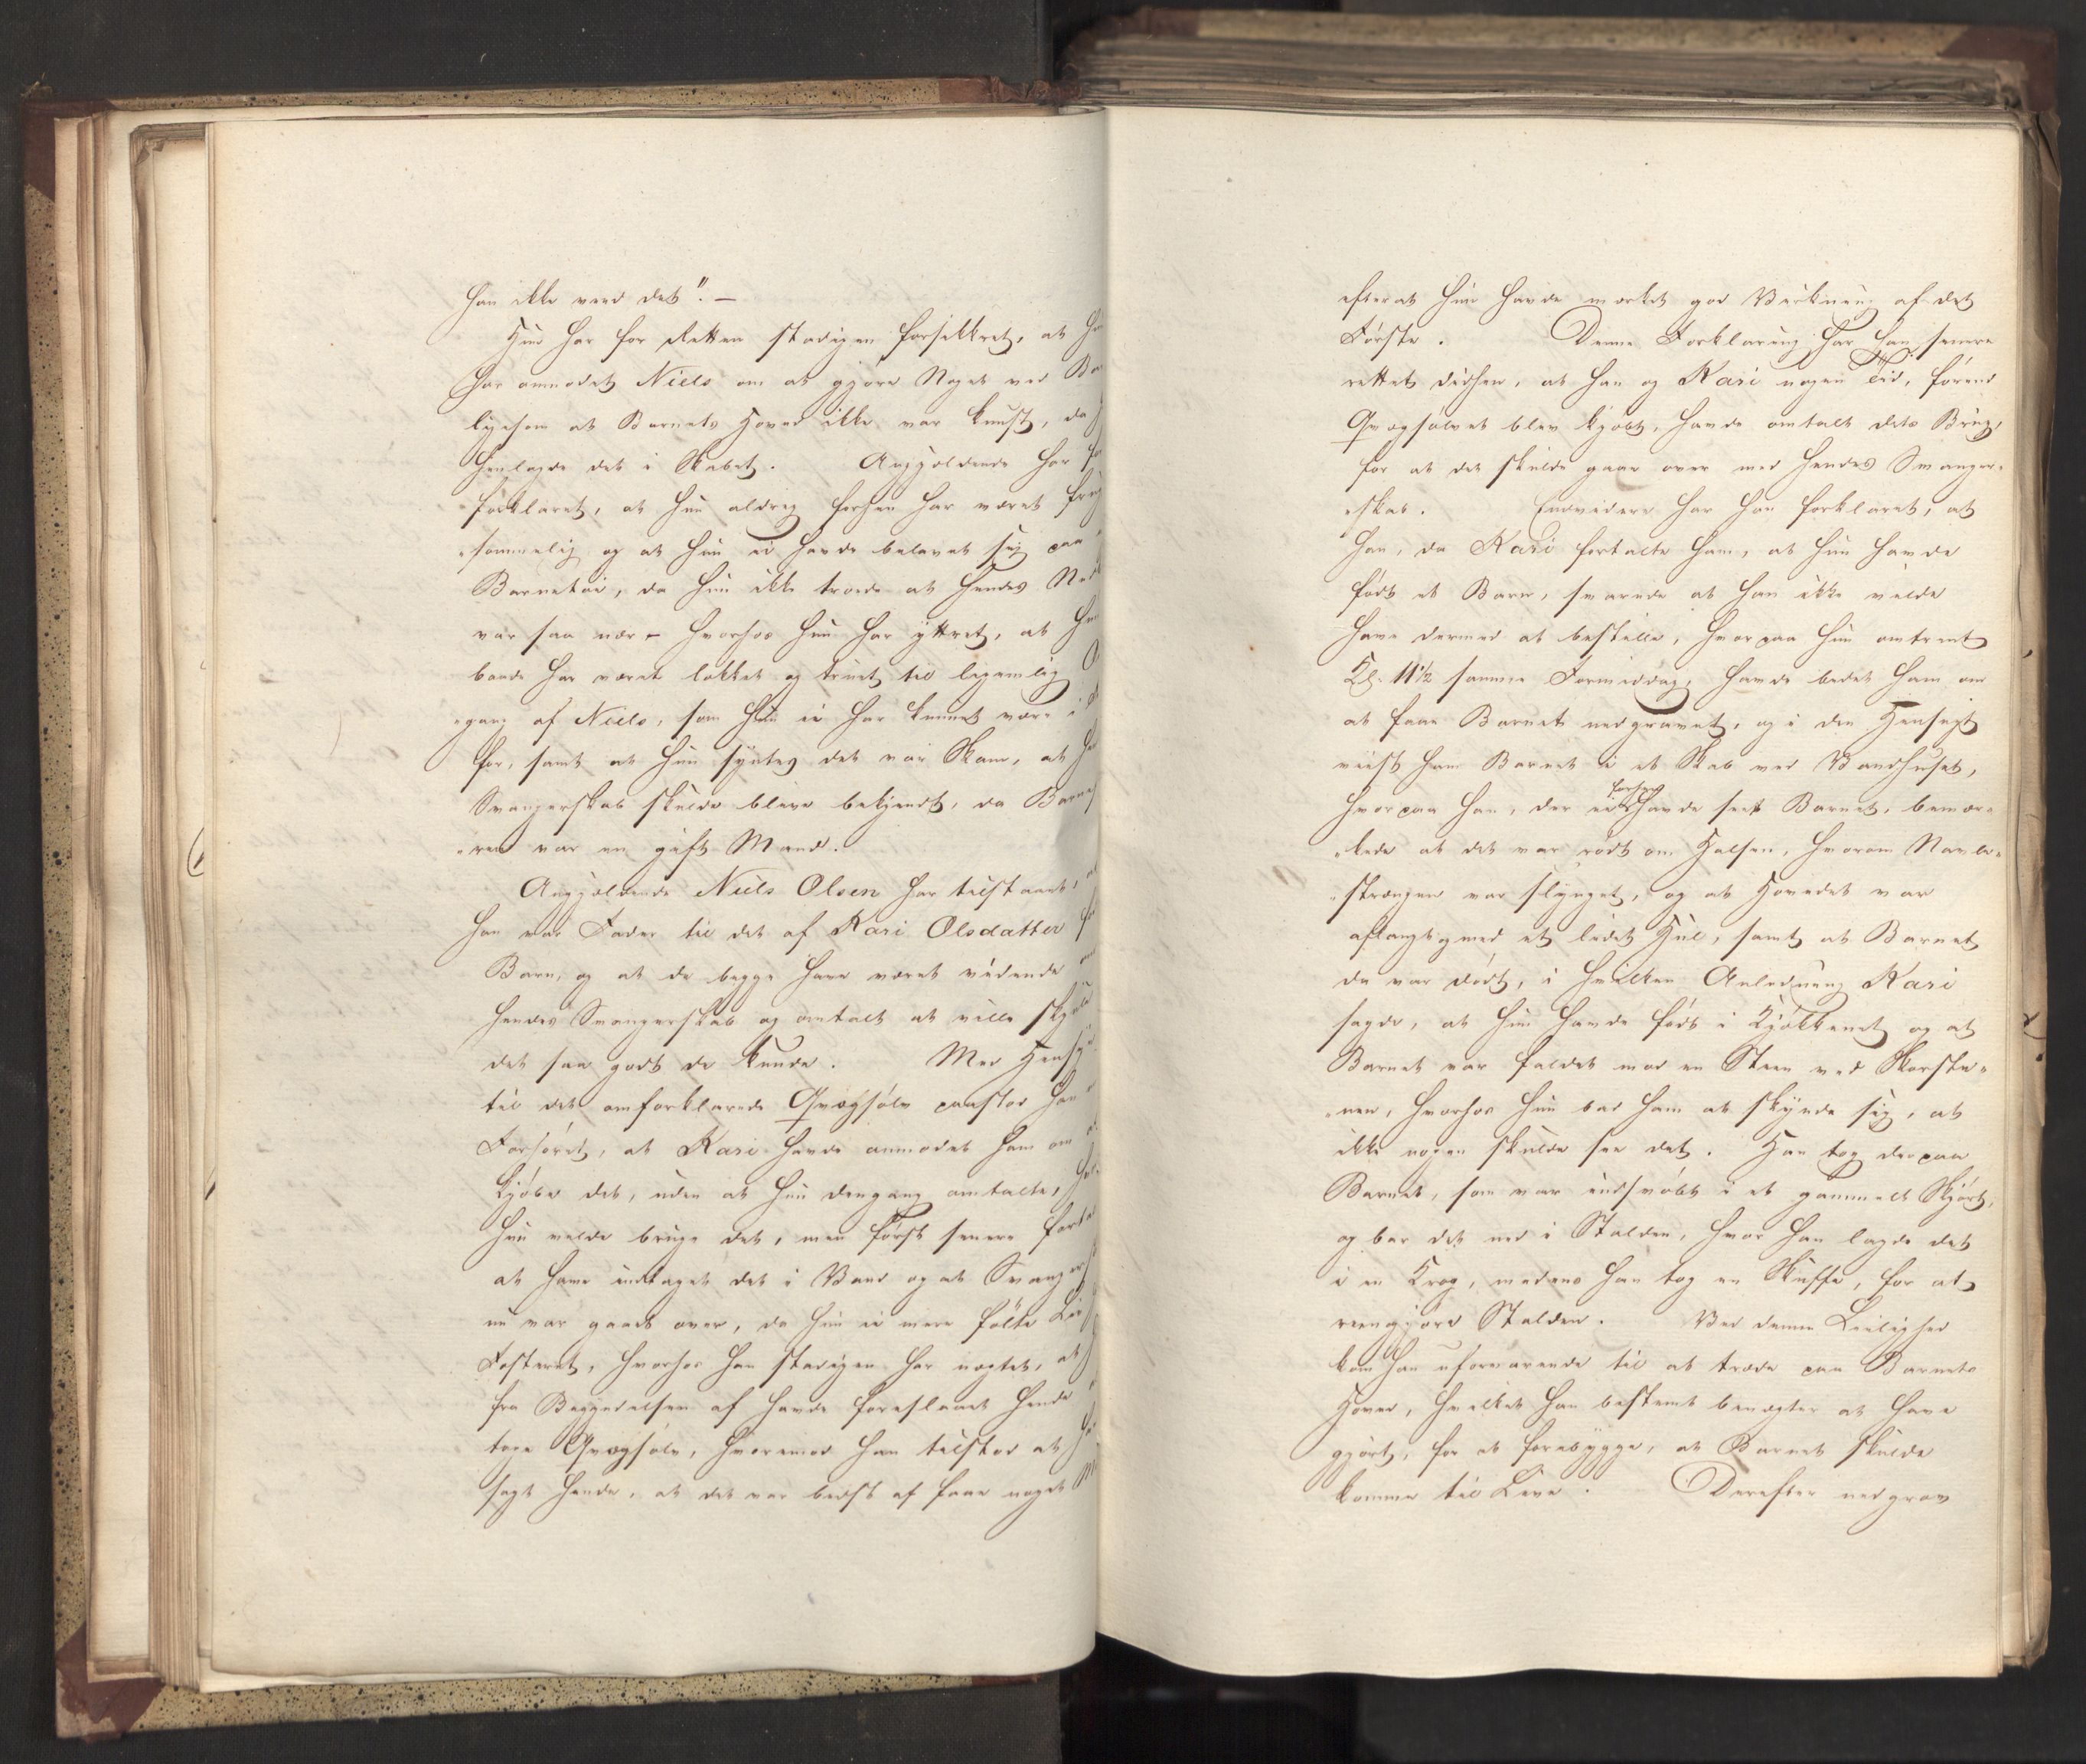 han ikke veed det". —
Hun har for Retten stadigen forsikkret, at
har anmodet Niels om at gjøre Noget ved
ligesom at Barnets Hoved ikke var knust, da
henlagde det i Skabet. Angjældende har
forklaret, at hun aldrig forhen har været frug
„sommelig og at hun ei havde belavet sig paa
Barnetøi, da hun ikke troede at hendes
var saa nær – hvorhos hun har yttret, at
baade har været lokket og truet til legemlig
„gang af Niels, som hun ei har kunnet være i
for, samt at hun syntes det var Skam, at
Svangerskab skulde blive bekjendt, da Barne
„ren var en gift Mand.
Angjældende Niels Olsen har tilstaaet,
han var Fader til det af Kari Olsdatter
Barn, og at de begge have været vidende
hendes Svangerskab og omtalt at ville skjule
det saa godt de kunde. Med Hensyn
til det omforklarede Qvægsølv paastod han
Forhøret, at Kari havde anmodet ham om
kjøbe det, uden at hun dengang omtalte,
hun vilde bruge det, men først senere
at have indtaget det i Vand og at Svanger
nu var gaaet over, da hun ei mere følte Liv
Fosteret, hvorhos han stadigen har nægtet, at
fra Begyndelsen af havde foreslaaet hende
tage Qvægsølv, hvorimod han tilstod at
sagt hende, at det var bedst af faae noget
efterat hun havde mærket god Virkning af det
Første. Denne Forklaring har han senere
rettet didhen, at han og Kari nogen Tid, førend
Qvægsølvet blev kjøbt, havde omtalt dets Brug,
for at det skulde gaae over med hendes Svanger„
„skab. Endvidere har han forklaret, at
han, da Kari fortalte ham, at hun havde
født et Barn, svarede at han ikke vilde
have dermed at bestille, hvorpaa hun omtrent
Kl. 11 1/2 samme Formiddag, havde bedet ham om
at faae Barnet nedgravet, og i den Hensigt
viist ham Barnet i et Skab ved Vandhuset,
forhen
hvorpaa han, der ei havde seet Barnet, bemær„
„kede at det var rødt om Halsen, hvorom Navle„
„strængen var slynget, og at Hovedet var
aflangt og med et lidet Hul, samt at Barnet
da var dødt, i hvilken Anledning Kari
sagde, at hun havde født i Kjøkkenet og at
Barnet var faldet mod en Steen ved Skorste„
„nen, hvorhos hun bad ham at skynde sig, at
ikke nogen skulde see det. Han tog derpaa
Barnet, som var indsvøbt i et gammelt Skjørt,
og bar det ned i Stalden, hvor han lagde det
i en Krog, medens han tog en Skuffe, for at
reengjøre Stalden. Ved denne Leilighed
kom han uforvarende til at træde paa Barnets
Hoved, hvilket han bestemt benægter at have
gjort, for at forebygge, at Barnet skulde
komme til Live. Derefter nedgrov